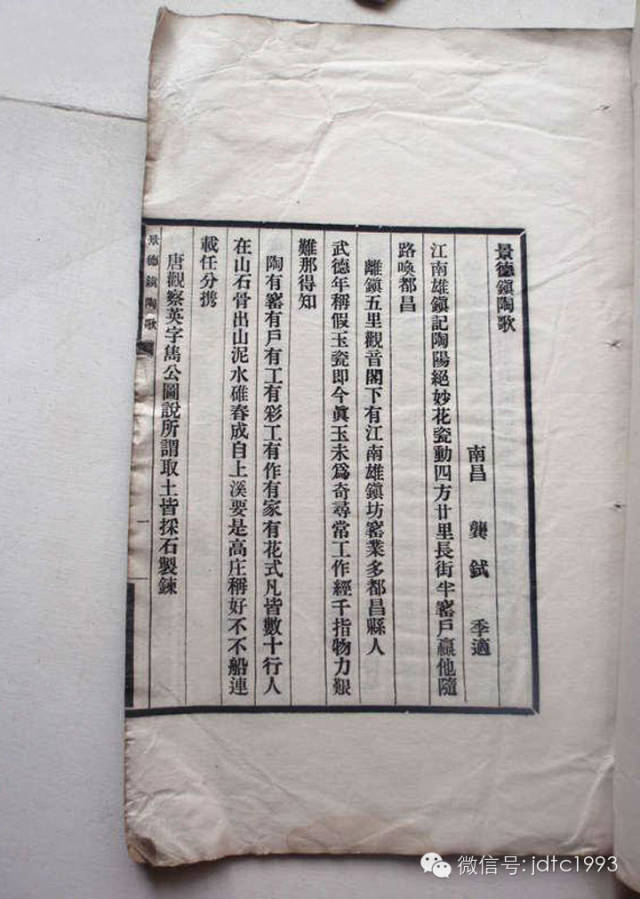 景德鎮陶歌
南昌 龔鉽 季適
江南雄鎮記陶陽絕妙花瓷動四方廿里長街半窰戶贏他隨
路喚都昌
離鎮五里觀音閣下有江南雄鎮坊窰業多都昌縣人
武德年稱假玉瓷即今眞玉未爲奇尋常工作經千指物力艱
難那得知
陶有窰有戶有工有彩工有作有家有花式凡皆數十行人
在山石骨出山泥水碓舂成自上溪要是高庄稱好不不船連
載任分携
唐觀察英字雋公圖說所謂取土皆採石製鍊
景德鎮陶歌
一
微信号: jdtc1993